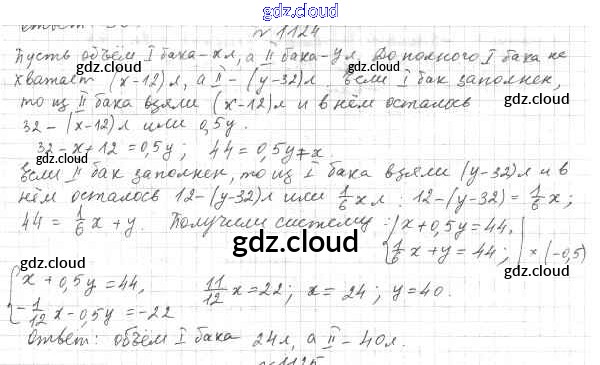 gdz.cloud
Ответ:
№1124
Пусть объём I бака-x л, а II бака-y л. До полного I бака не
хватает (x-12) л, а II - (y-32) л. Если I бак заполнен,
то из II бака взяли (x-12) л и в нём осталось
32 - (x-12) л или 0,5y.
32 - x + 12 = 0,5y; 44 = 0,5y + x.
Если II бак заполнен, то из I бака взяли (y-32) л и в
нём осталось 12 - (y-32) л или 1/6 x л. 12 - (y-32) = 1/6 x;
44 = 1/6 x + y. Получили систему: { x + 0,5y = 44,
1/6 x + y = 44; | × (-0,5)
{ x + 0,5y = 44, 11/12 x = 22; x = 24; y = 40.
- 1/12 x - 0,5y = -22
Ответ: объём I бака 24 л, а II - 40 л.
№1125
gdz.cloud
gdz.cloud
gdz.cloud
gdz.cloud
gdz.cloud
gdz.cloud
gdz.cloud
gdz.cloud
gdz.cloud